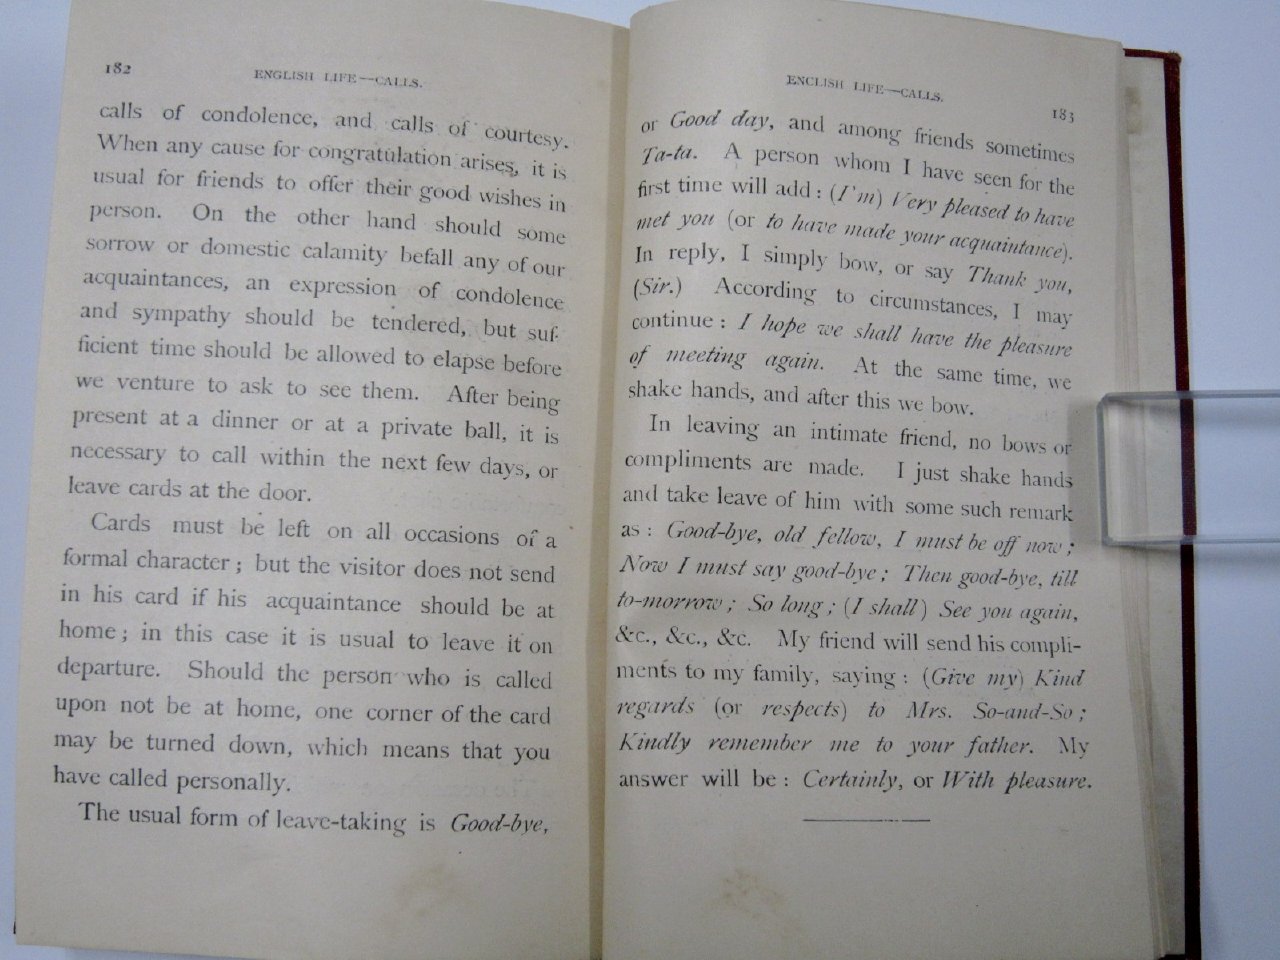 182
ENGLISH LIFE—CALLS.
calls of condolence, and calls of courtesy.
When any cause for congratulation arises, it is
usual for friends to offer their good wishes in
person. On the other hand should some
sorrow or domestic calamity befall any of our
acquaintances, an expression of condolence
and sympathy should be tendered, but suf-
ficient time should be allowed to elapse before
we venture to ask to see them. After being
present at a dinner or at a private ball, it is
necessary to call within the next few days, or
leave cards at the door.
Cards must be left on all occasions of a
formal character; but the visitor does not send
in his card if his acquaintance should be at
home; in this case it is usual to leave it on
departure. Should the person who is called
upon not be at home, one corner of the card
may be turned down, which means that you
have called personally.
The usual form of leave-taking is Good-bye,
ENGLISH LIFE—CALLS.
183
or Good day, and among friends sometimes
Ta-ta. A person whom I have seen for the
first time will add: (I'm) Very pleased to have
met you (or to have made your acquaintance).
In reply, I simply bow, or say Thank you,
(Sir.) According to circumstances, I may
continue: I hope we shall have the pleasure
of meeting again. At the same time, we
shake hands, and after this we bow.
In leaving an intimate friend, no bows or
compliments are made. I just shake hands
and take leave of him with some such remark
as: Good-bye, old fellow, I must be off now;
Now I must say good-bye; Then good-bye, till
to-morrow; So long; (I shall) See you again,
&c., &c., &c. My friend will send his compli-
ments to my family, saying: (Give my) Kind
regards (or respects) to Mrs. So-and-So;
Kindly remember me to your father. My
answer will be: Certainly, or With pleasure.